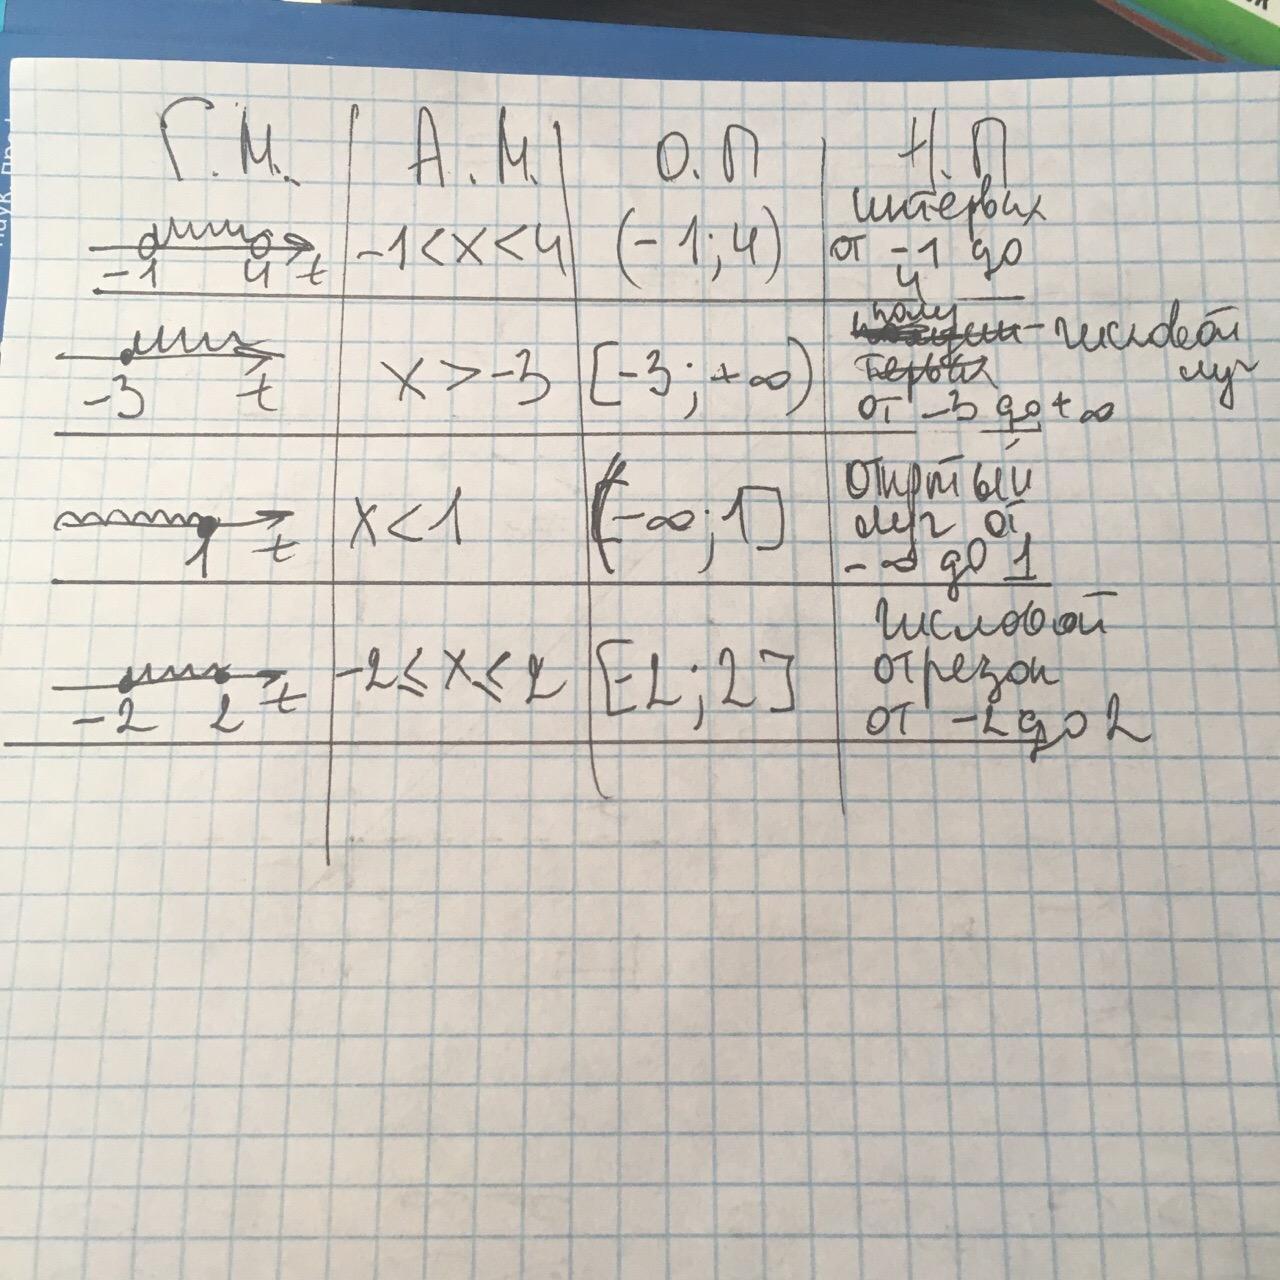 Г.М. А.М. О.П Н.П
-1 4 t -1<x<4 (-1;4) интервал от -1 до 4
-3 t x>-3 [-3;+∞) числовой луч от -3 до +∞
1 t x<1 (-∞;1] открытый луч от -∞ до 1
-2 2 t -2≤x≤2 [-2;2] числовой отрезок от -2 до 2